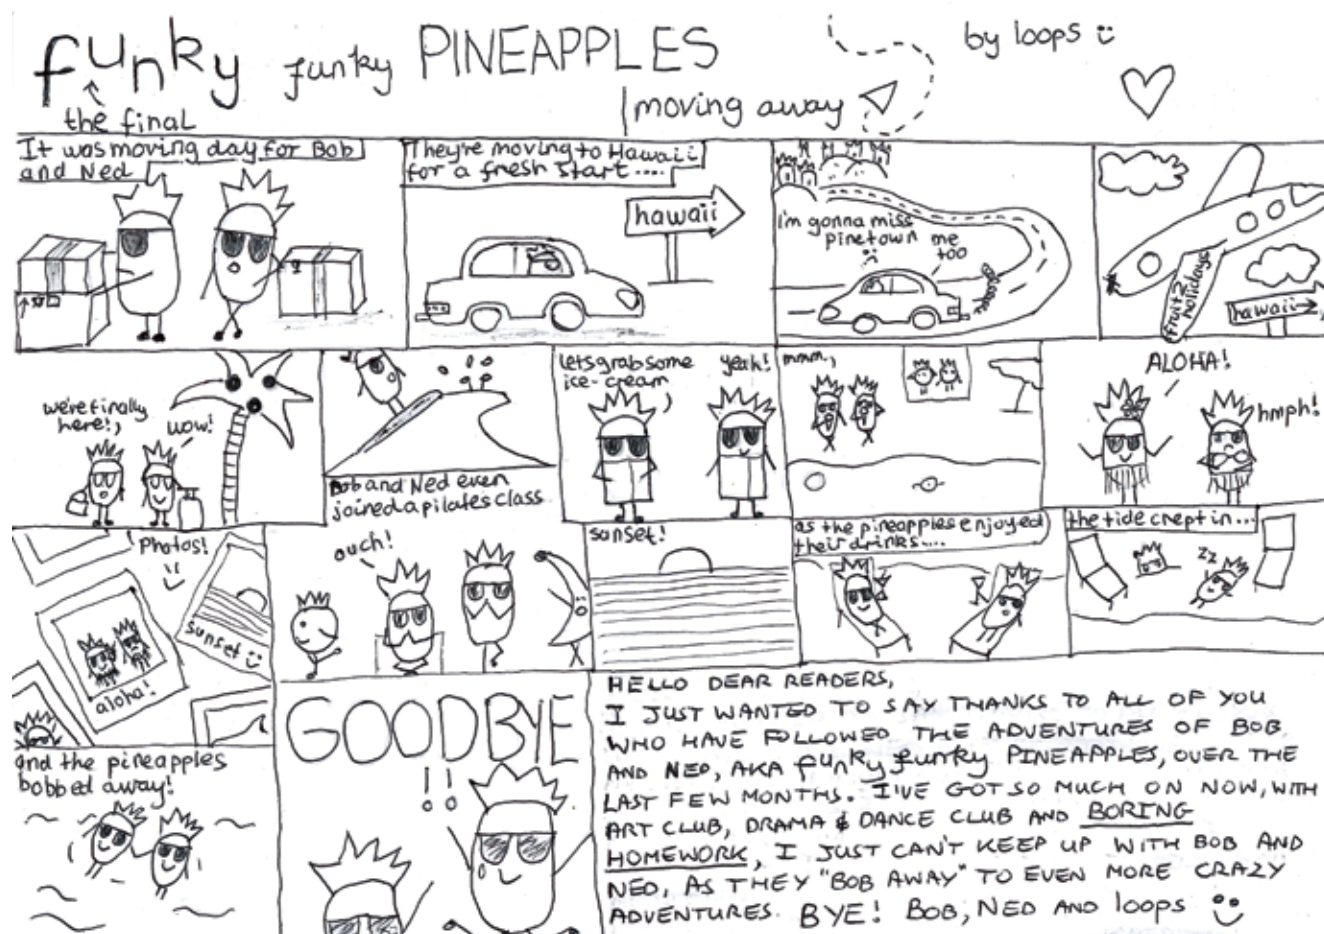 funky funky PINEAPPLES
by loops
the final
moving away
It was moving day for Bob
and Ned
They're moving to Hawaii
for a fresh start....
hawaii
I'm gonna miss
pinetown
me
too
fruitz
holidays
hawaii
we're finally
here!
wow!
Bob and Ned even
joined a pilates class
lets grab some
ice-cream
yeah!
mmm,
ALOHA!
hmph!
Photos!
sunset
aloha!
ouch!
sunset!
as the pineapples enjoyed
their drinks....
the tide crept in...
zz
and the pineapples
bobbed away!
GOODBYE
!!
HELLO DEAR READERS,
I JUST WANTED TO SAY THANKS TO ALL OF YOU
WHO HAVE FOLLOWED THE ADVENTURES OF BOB
AND NED, AKA funky funky PINEAPPLES, OVER THE
LAST FEW MONTHS. I'VE GOT SO MUCH ON NOW, WITH
ART CLUB, DRAMA & DANCE CLUB AND BORING
HOMEWORK, I JUST CAN'T KEEP UP WITH BOB AND
NED, AS THEY "BOB AWAY" TO EVEN MORE CRAZY
ADVENTURES. BYE! BOB, NED AND loops